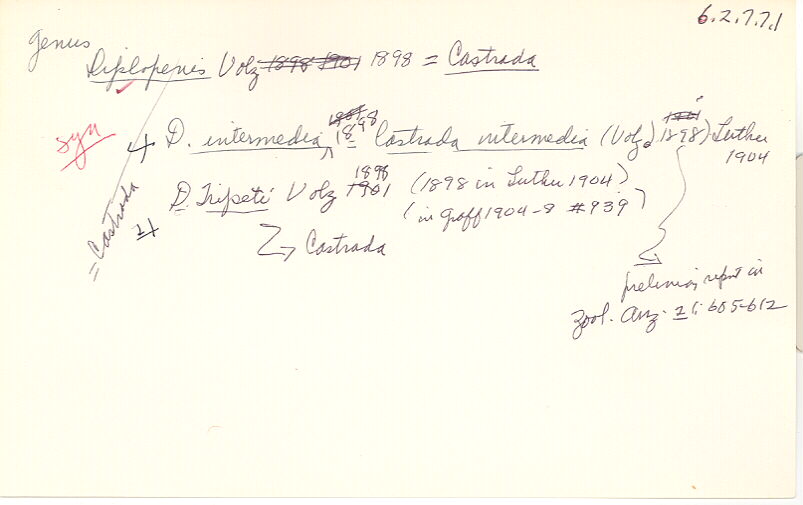 6.2.7.7.1
genus
Diplopenis Volz 1898 1901 1898 = Castrada
syn
+ D. intermedia, 1901 1898 = Castrada intermedia (Volz, 1901 1898) Luther 1904
= Castrada
+ D. Tripeti Volz 1901 1898 (1898 in Luther 1904)
(in Graff 1904-8 #939)
→ Castrada
report in
Zool. Anz. 21: 605-612